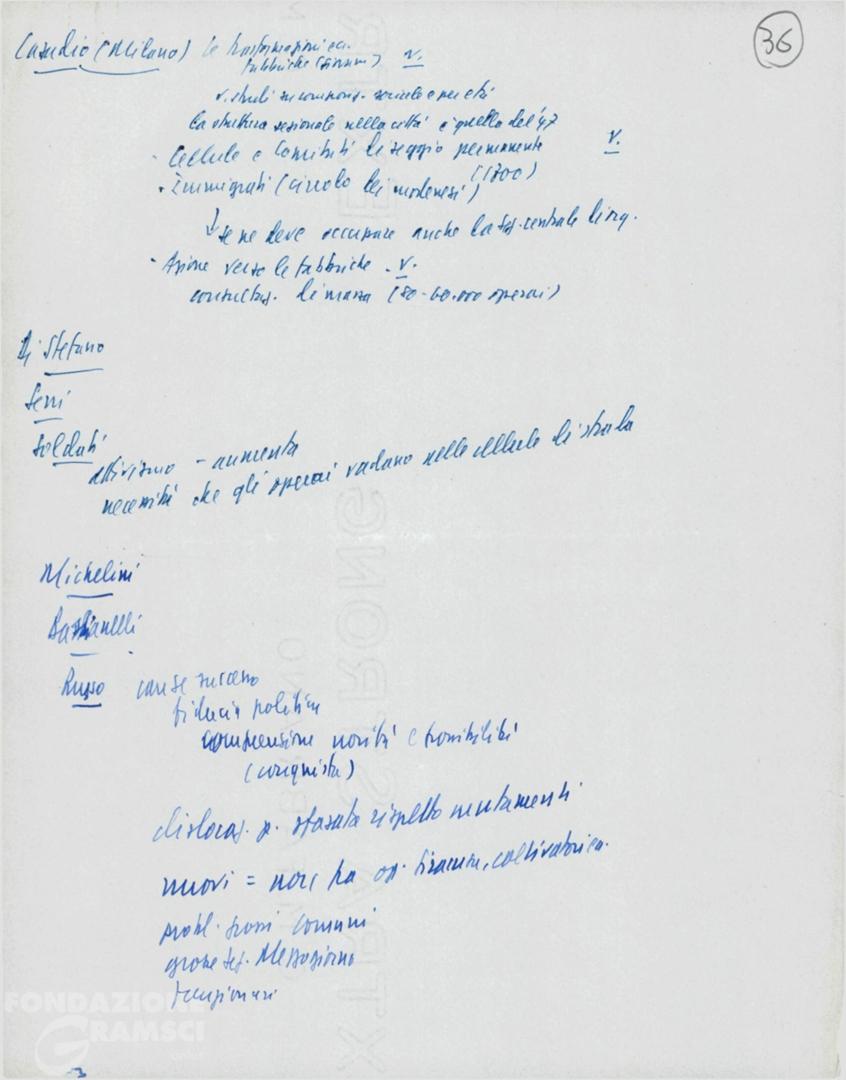 36
Casadio (Milano) le trasformazioni ca.
fabbriche (sinum) v.
v. studi su compos. sociale e per età
La struttura sezionale nella città è quella del '47
- Cellule e Comitati di seggio permanente v.
(1300)
• Immigrati (circolo dei modenesi)
↓ se ne deve occupare anche la sez. centrale di org.
- Azione verso le fabbriche . v.
consultaz. di massa (50-60.000 operai)
Di Stefano
Serri
Soldati
attivismo - aumenta
necessità che gli operai vadano nelle cellule di strada
Michelini
Bastianelli
Russo cause successo
fiducia politica
comprensione novità e possibilità
(conquista)
dislocaz. p. sfasata rispetto mutamenti
nuovi = non ha op. , coltivatori ca.
probl. grossi comuni
grosse sez. Mezzogiorno
funzionari
FONDAZIONE
GRAMSCI
EXTRA STRONG